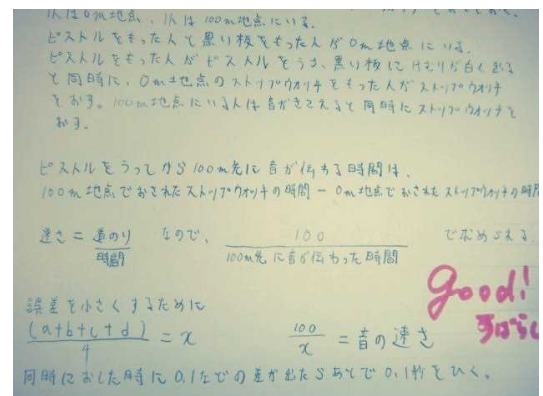 1人は0m地点、1人は100m地点にいる。
ピストルをもった人と黒い板をもった人が0m地点にいる。
ピストルをもった人がピストルをうち、黒い板にけむりが白くおる
と同時に、0m地点のストップウォッチをもった人がストップウォッチ
をおす。100m地点にいる人は音がきこえると同時にストップウォッチを
おす。
ピストルをうってから100m先に音が伝わる時間は、
100m地点でおされたストップウォッチの時間 − 0m地点でおされたストップウォッチの時間
速さ = 道のり/時間 なので、 100/100m先に音が伝わった時間 で求められる
誤差を小さくするために
(a+b+c+d)/4 = x 100/x = 音の速さ
good!
すばらし
同時におした時に0.1などの差が出たらあとで0.1秒をひく。